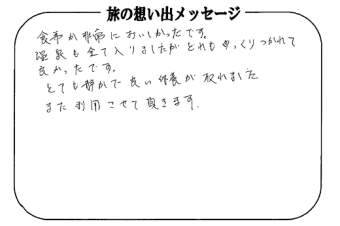 旅の想い出メッセージ
食事が非常においしかったです。
温泉も全て入りましたがどれもゆっくりつかれて
良かったです。
とても静かで良い休養が取れました
また利用させて頂きます.